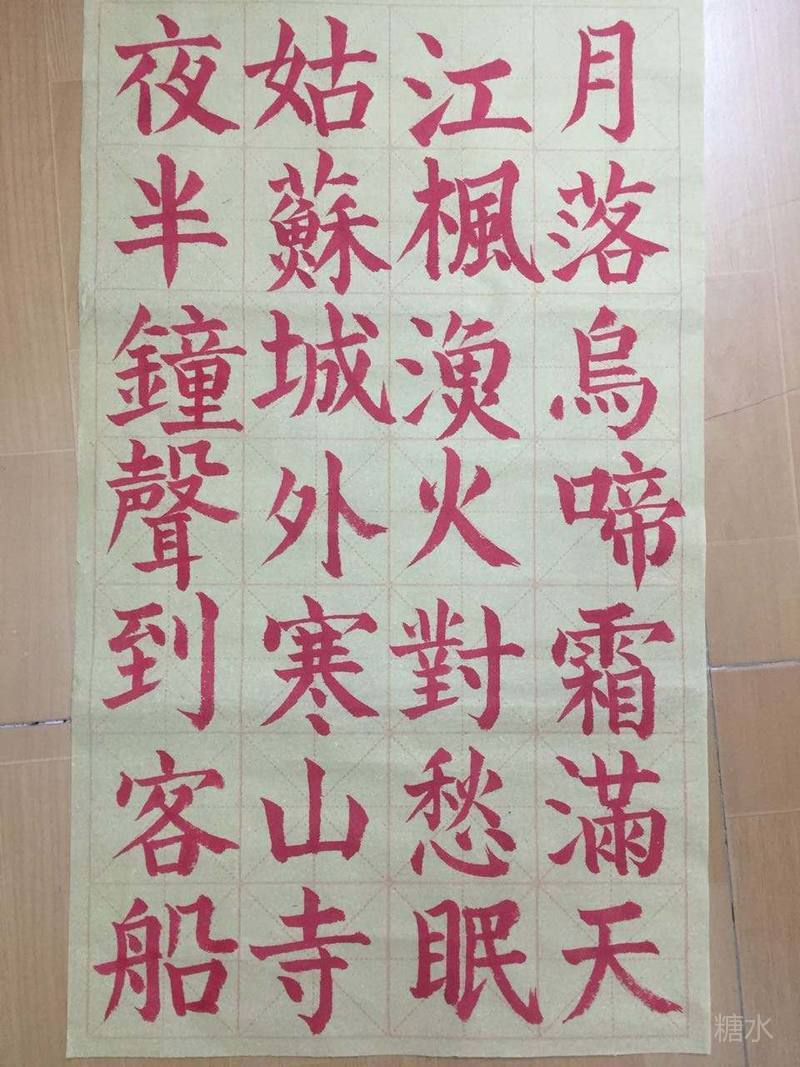 月落烏啼霜滿天
江楓漁火對愁眠
姑蘇城外寒山寺
夜半鐘聲到客船
糖水